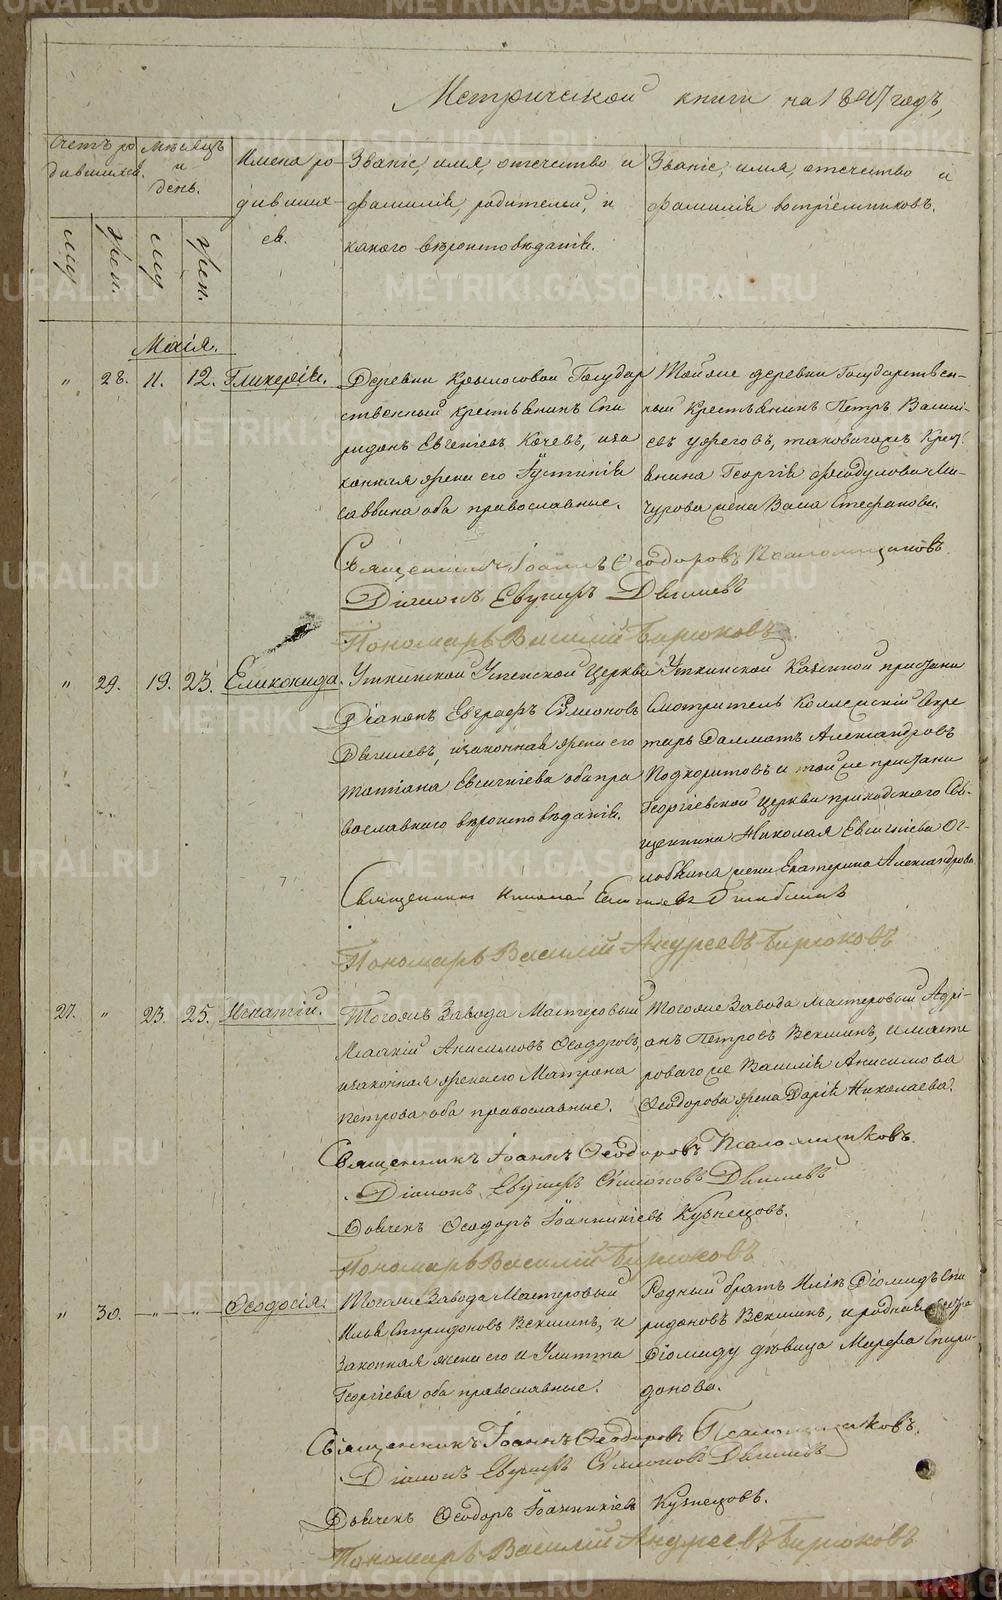 Метрической книги на 1847 годъ,
Счетъ ро
дившихся.
Мѣсяцъ
и
день.
Имена ро-
дивших-
ся.
Званіе, имя, отечество и
фамилія, родителей, и
какого вѣроисповѣданія.
Званіе, имя, отечество и
фамилія воспріемниковъ.
му
жен.
му
жен.
Маія.
" 28. 11. 12. Гликерія.
Деревни Крылосовой Государ
ственный крестьянинъ Спи
ридонъ Евгеніевъ Качевъ, иза
конная жена его Іустинія
Саввина оба православные.
Той же деревни Государствен-
ный Крестьянинъ Петръ Васильевъ
таковагожъ Крестьянина Георгія Ѳеодулова Ми-
чурова жена Васса Стефанова.
Священникъ Іоаннъ Ѳеодоровъ Псаломщиковъ
Діаконъ Евграфъ Двгилевъ
Пономарь Василій Бирюковъ
" 29. 19. 23. Еликонида.
Уткинской Успенской Церкви
Діаконъ Евграфъ Симеоновъ
Двгилевъ, изаконная жена его
Татіана Евгеніева оба пра
вославнаго вѣроисповѣданія.
Уткинской Казенной пристани
Смотритель Коллежскій Секре
тарь Далматъ Александровъ
Подкорытовъ и той же пристани
Георгіевской церкви приходскаго Свя-
щенника Николая Евгеніева Ог-
лоблина жена Екатерина Александрова.
Священникъ Николай Евгеніевъ Оглоблинъ
Пономарь Василій Андреевъ Бирюковъ
27. " 23. 25. Игнатій.
Тогожъ Завода Мастеровый
Исаакій Анисимовъ Ѳеодоровъ,
изаконная женаего Матрона
Петрова оба православные.
Тогоже Завода мастеровый Адрі-
анъ Петровъ Векшинъ, имасте
роваго же Василія Анисимова
Ѳеодорова жена Дарія Николаева.
Священникъ Іоаннъ Ѳеодоровъ Псаломщиковъ.
Діаконъ Евграфъ Симеоновъ Двгилевъ
Дьячекъ Ѳеодоръ Іоанникіевъ Кузнецовъ.
Пономарь Василій Бирюковъ
" 30. — " — " — Ѳеодосія.
Тогоже Завода Мастеровый
Илья Спиридоновъ Векшинъ, и
законная жена его Иулитта
Георгіева оба православные.
Родный братъ Иліи Діомидъ Спи
ридоновъ Векшинъ, и родная сестра
Діомиду дѣвица Марфа Спири-
донова.
Священникъ Іоаннъ Ѳеодоровъ Псаломщиковъ.
Діаконъ Евграфъ Симеоновъ Двгилевъ
Дьячекъ Ѳеодоръ Іоанникіевъ Кузнецовъ.
Пономарь Василій Андреевъ Бирюковъ
METRIKI.GASO-URAL.RU